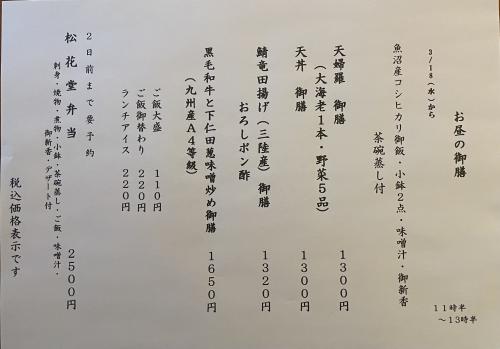 3/18(水)から
お昼の御膳
11時半
～13時半
魚沼産コシヒカリ御飯・小鉢2点・味噌汁・御新香
茶碗蒸し付
天婦羅 御膳 1300円
(大海老1本・野菜5品)
天丼 御膳 1300円
鯖竜田揚げ(三陸産)御膳 1320円
おろしポン酢
黒毛和牛と下仁田葱味噌炒め御膳 1650円
(九州産A4等級)
ご飯大盛 110円
ご飯御替わり 220円
ランチアイス 220円
2日前まで要予約
松花堂弁当 2500円
刺身・焼物・煮物・小鉢・茶碗蒸し・ご飯・味噌汁・
御新香・デザート付
税込価格表示です